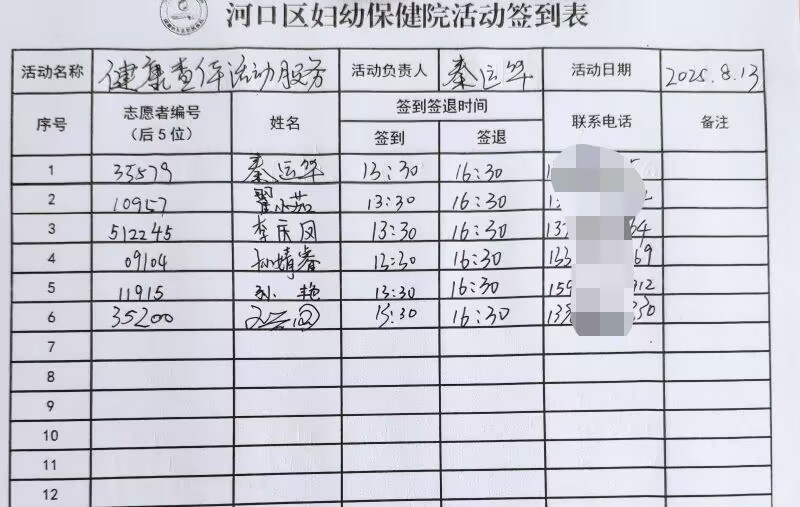 河口区妇幼保健院活动签到表
活动名称 健康查体活动服务 活动负责人 秦运华 活动日期 2025.8.13
序号 志愿者编号（后5位） 姓名 签到签退时间 联系电话 备注
签到 签退
1 35579 秦运华 13:30 16:30
2 10957 翟小茹 13:30 16:30
3 512245 李庆凤 13:30 16:30
4 09104 孙婧睿 13:30 16:30
5 11915 孙艳 13:30 16:30
6 35200 13:30 16:30
7
8
9
10
11
12